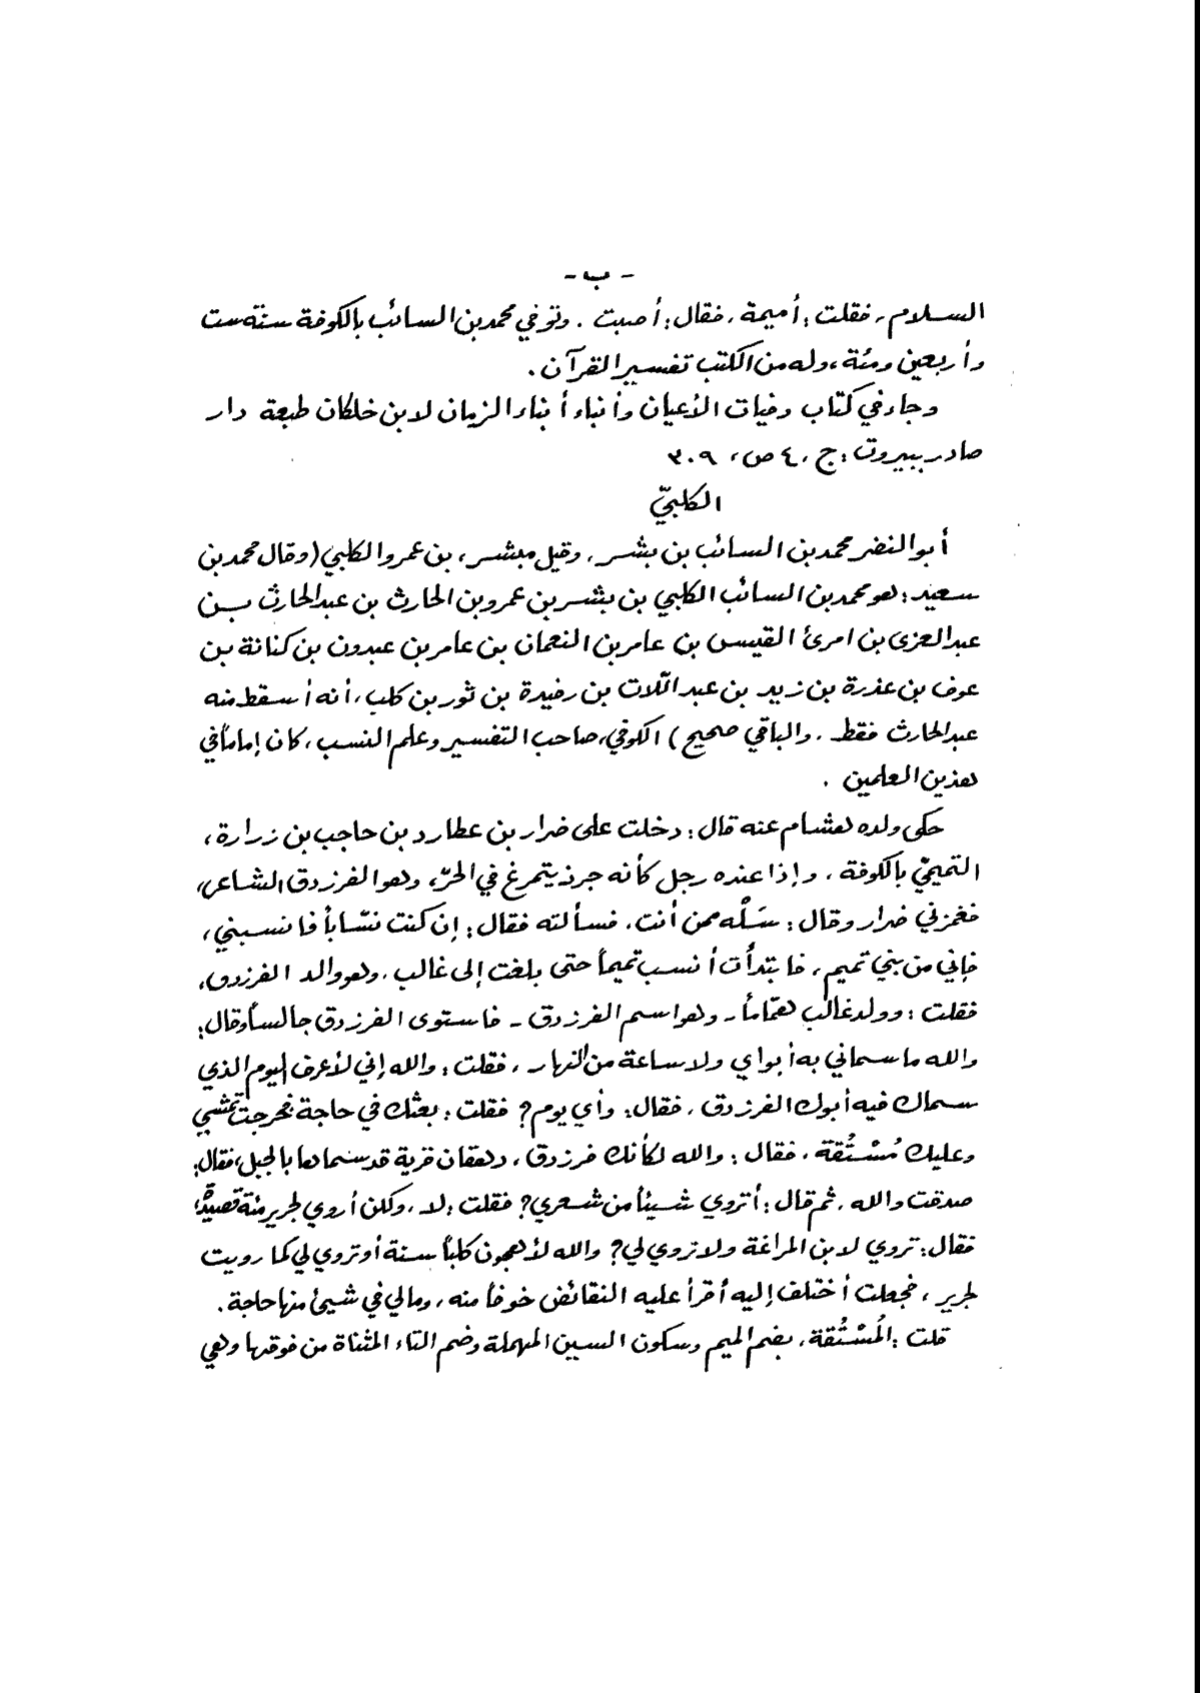 - ب -
السلام، فقلت: أميمة، فقال: أصبت. وتوفي محمد بن السائب بالكوفة سنة ست
وأربعين ومئة، وله من الكتب تفسير القرآن.
وجاء في كتاب وفيات الأعيان وأنباء أبناء الزمان لابن خلكان طبعة دار
صادر ببيروت: ج، ٤ ص، ٣٠٩
الكلبيّ
أبو النضر محمد بن السائب بن بشر، وقيل مبشر، بن عمرو الكلبي (وقال محمد بن
سعيد: هو محمد بن السائب الكلبي بن بشر بن عمرو بن الحارث بن عبد الحارث بن
عبد العزى بن امرئ القيس بن عامر بن النعمان بن عامر بن عبدون بن كنانة بن
عوف بن عذرة بن زيد بن عبد اللّات بن رفيدة بن ثور بن كلب، أنه أسقط منه
عبد الحارث فقط، والباقي صحيح) الكوفي، صاحب التفسير وعلم النسب، كان إماماً في
هذين العلمين.
حكى ولده هشام عنه قال: دخلت على ضرار بن عطارد بن حاجب بن زرارة،
التميميّ بالكوفة، وإذا عنده رجل كأنه جرذ يتمرغ في الحرّ، وهو الفرزدق الشاعر،
فغمزني ضرار وقال: سَلْه ممن أنت، فسألته فقال: إن كنت نسّاباً فانسبني،
فإني من بني تميم، فابتدأت أنسب تميماً حتى بلغت إلى غالب، وهو والد الفرزدق،
فقلت: وولد غالب همّاماً - وهو اسم الفرزدق - فاستوى الفرزدق جالساً وقال:
والله ما سماني به أبواي ولا ساعة من النهار، فقلت: والله إني لأعرف اليوم الذي
سماك فيه أبوك الفرزدق، فقال: وأي يوم؟ فقلت: بعثك في حاجة فخرجت تمشي
وعليك مُسْتُقة، فقال: والله لكأنك فرزدق، دهقان قرية قد سماها بالجبل، فقال:
صدقت والله، ثم قال: أتروي شيئاً من شعري؟ فقلت: لا، ولكن أروي لجرير مئة قصيدة،
فقال: تروي لابن المراغة ولا تروي لي؟ والله لأهجون كلباً سنة أو تروي لي كما رويت
لجرير، فجعلت أختلف إليه أقرأ عليه النقائض خوفاً منه، ومالي في شيئ منها حاجة.
قلت: المُسْتُقة، بضم الميم وسكون السين المهملة وضم التاء المثناة من فوقها وهي